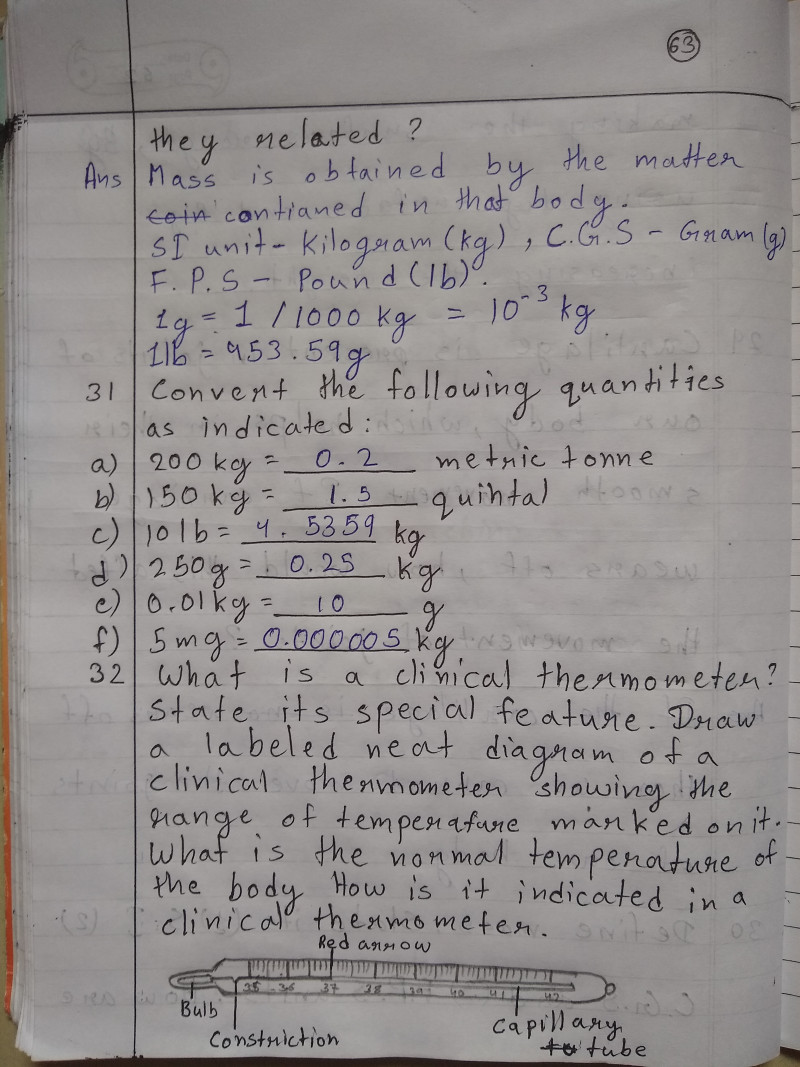 63
they related ?
Ans Mass is obtained by the matter
coin contianed in that body.
SI unit - Kilogram (kg) , C.G.S - Gram (g)
F.P.S - Pound (lb).
1g = 1 / 1000 kg = 10⁻³ kg
1lb = 453.59g
31 Convert the following quantities
as indicated :
a) 200 kg = 0.2 metric tonne
b) 150 kg = 1.5 quintal
c) 10 lb = 4.5359 kg
d) 250g = 0.25 kg
e) 0.01kg = 10 g
f) 5 mg = 0.000005 kg
32 What is a clinical thermometer?
State its special feature. Draw
a labeled neat diagram of a
clinical thermometer showing the
range of temperature marked on it.
What is the normal temperature of
the body How is it indicated in a
clinical thermometer.
Red arrow
35 36 37 38 39 40 41 42
Bulb
Constriction
Capillary
to tube